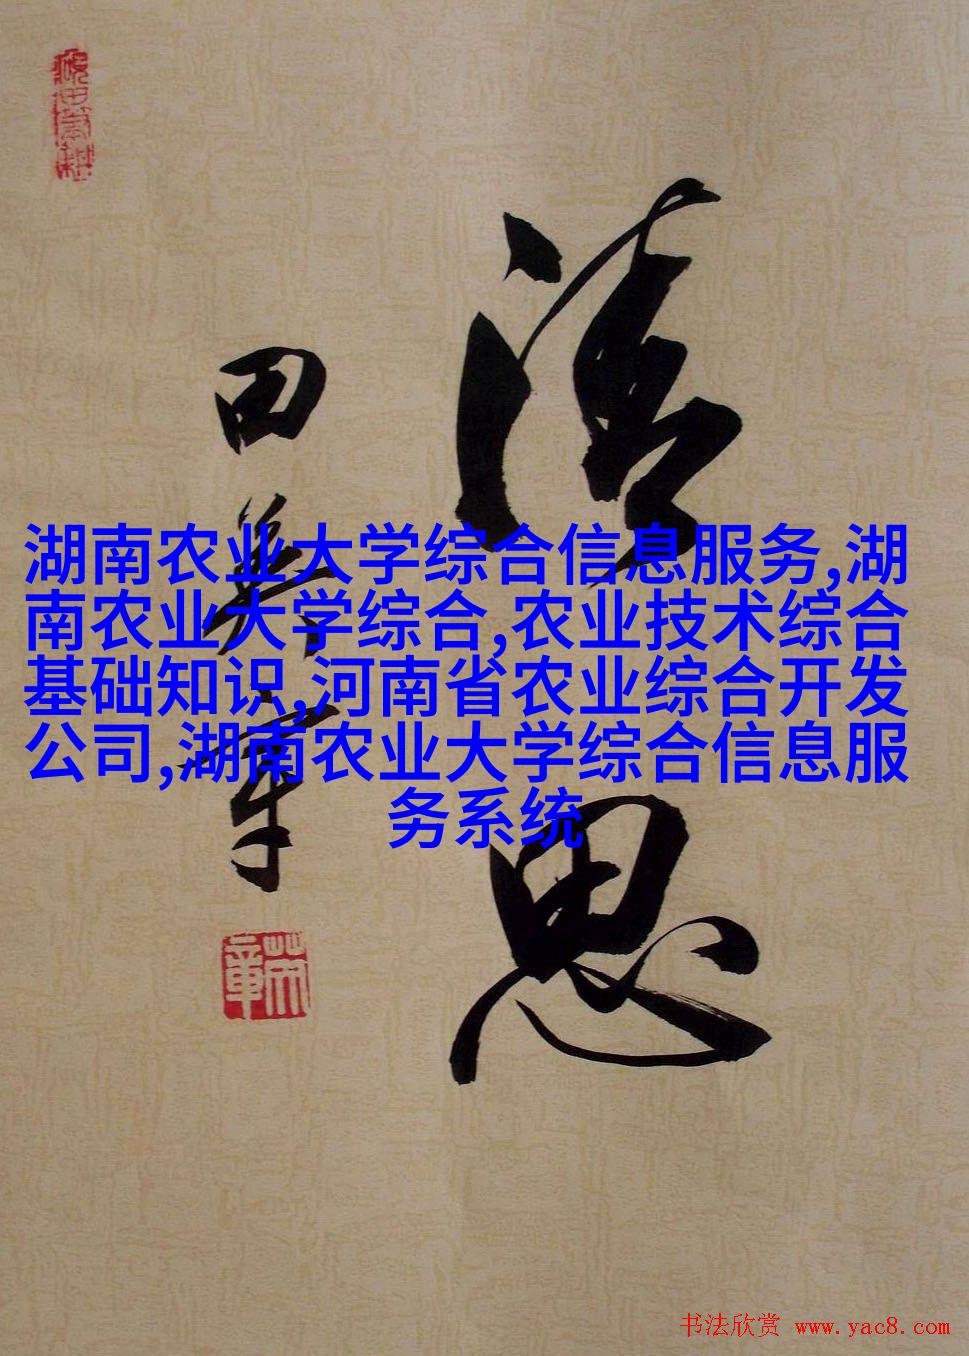 湖南农业大学综合信息服务,湖
南农业大学综合,农业技术综合
基础知识,河南省农业综合开发
公司,湖南农业大学综合信息服
务系统
清思
田英章
书法欣赏 www.yac8.com